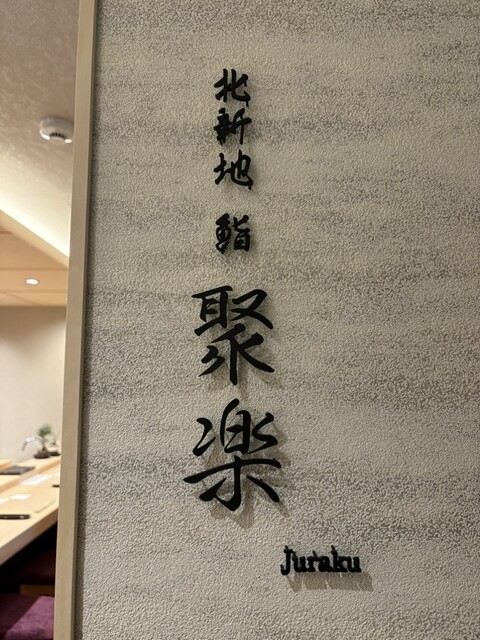 北新地 鮨
聚楽
Juraku